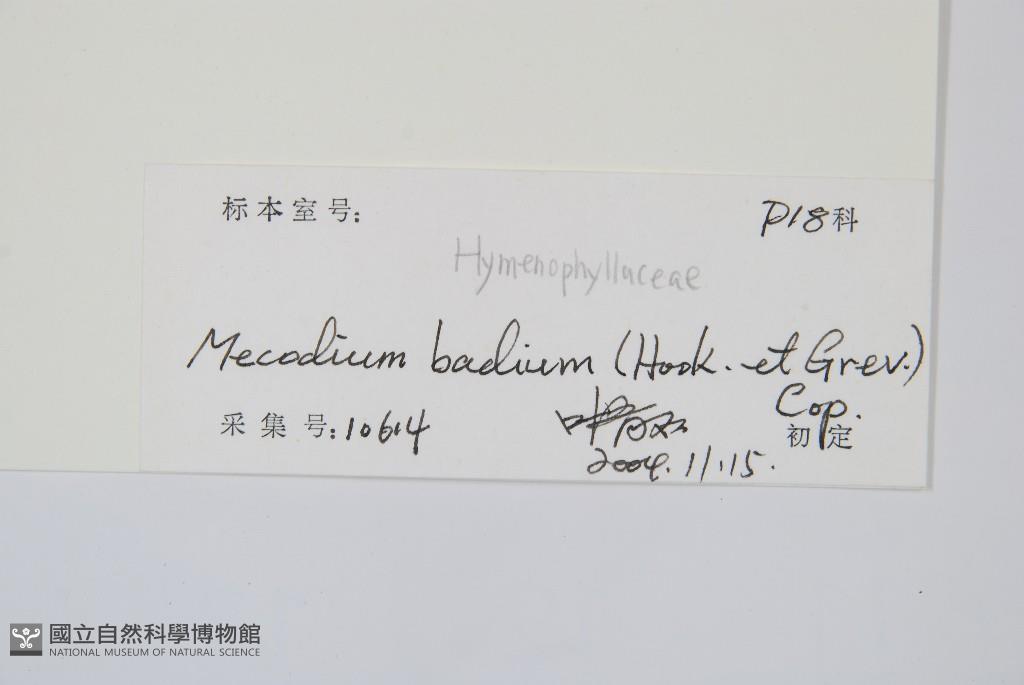 标本室号: P18科
Hymenophyllaceae
Mecodium badium (Hook. et Grev.)
Cop.
采集号:10614 初定
2004.11.15.
國立自然科學博物館
NATIONAL MUSEUM OF NATURAL SCIENCE